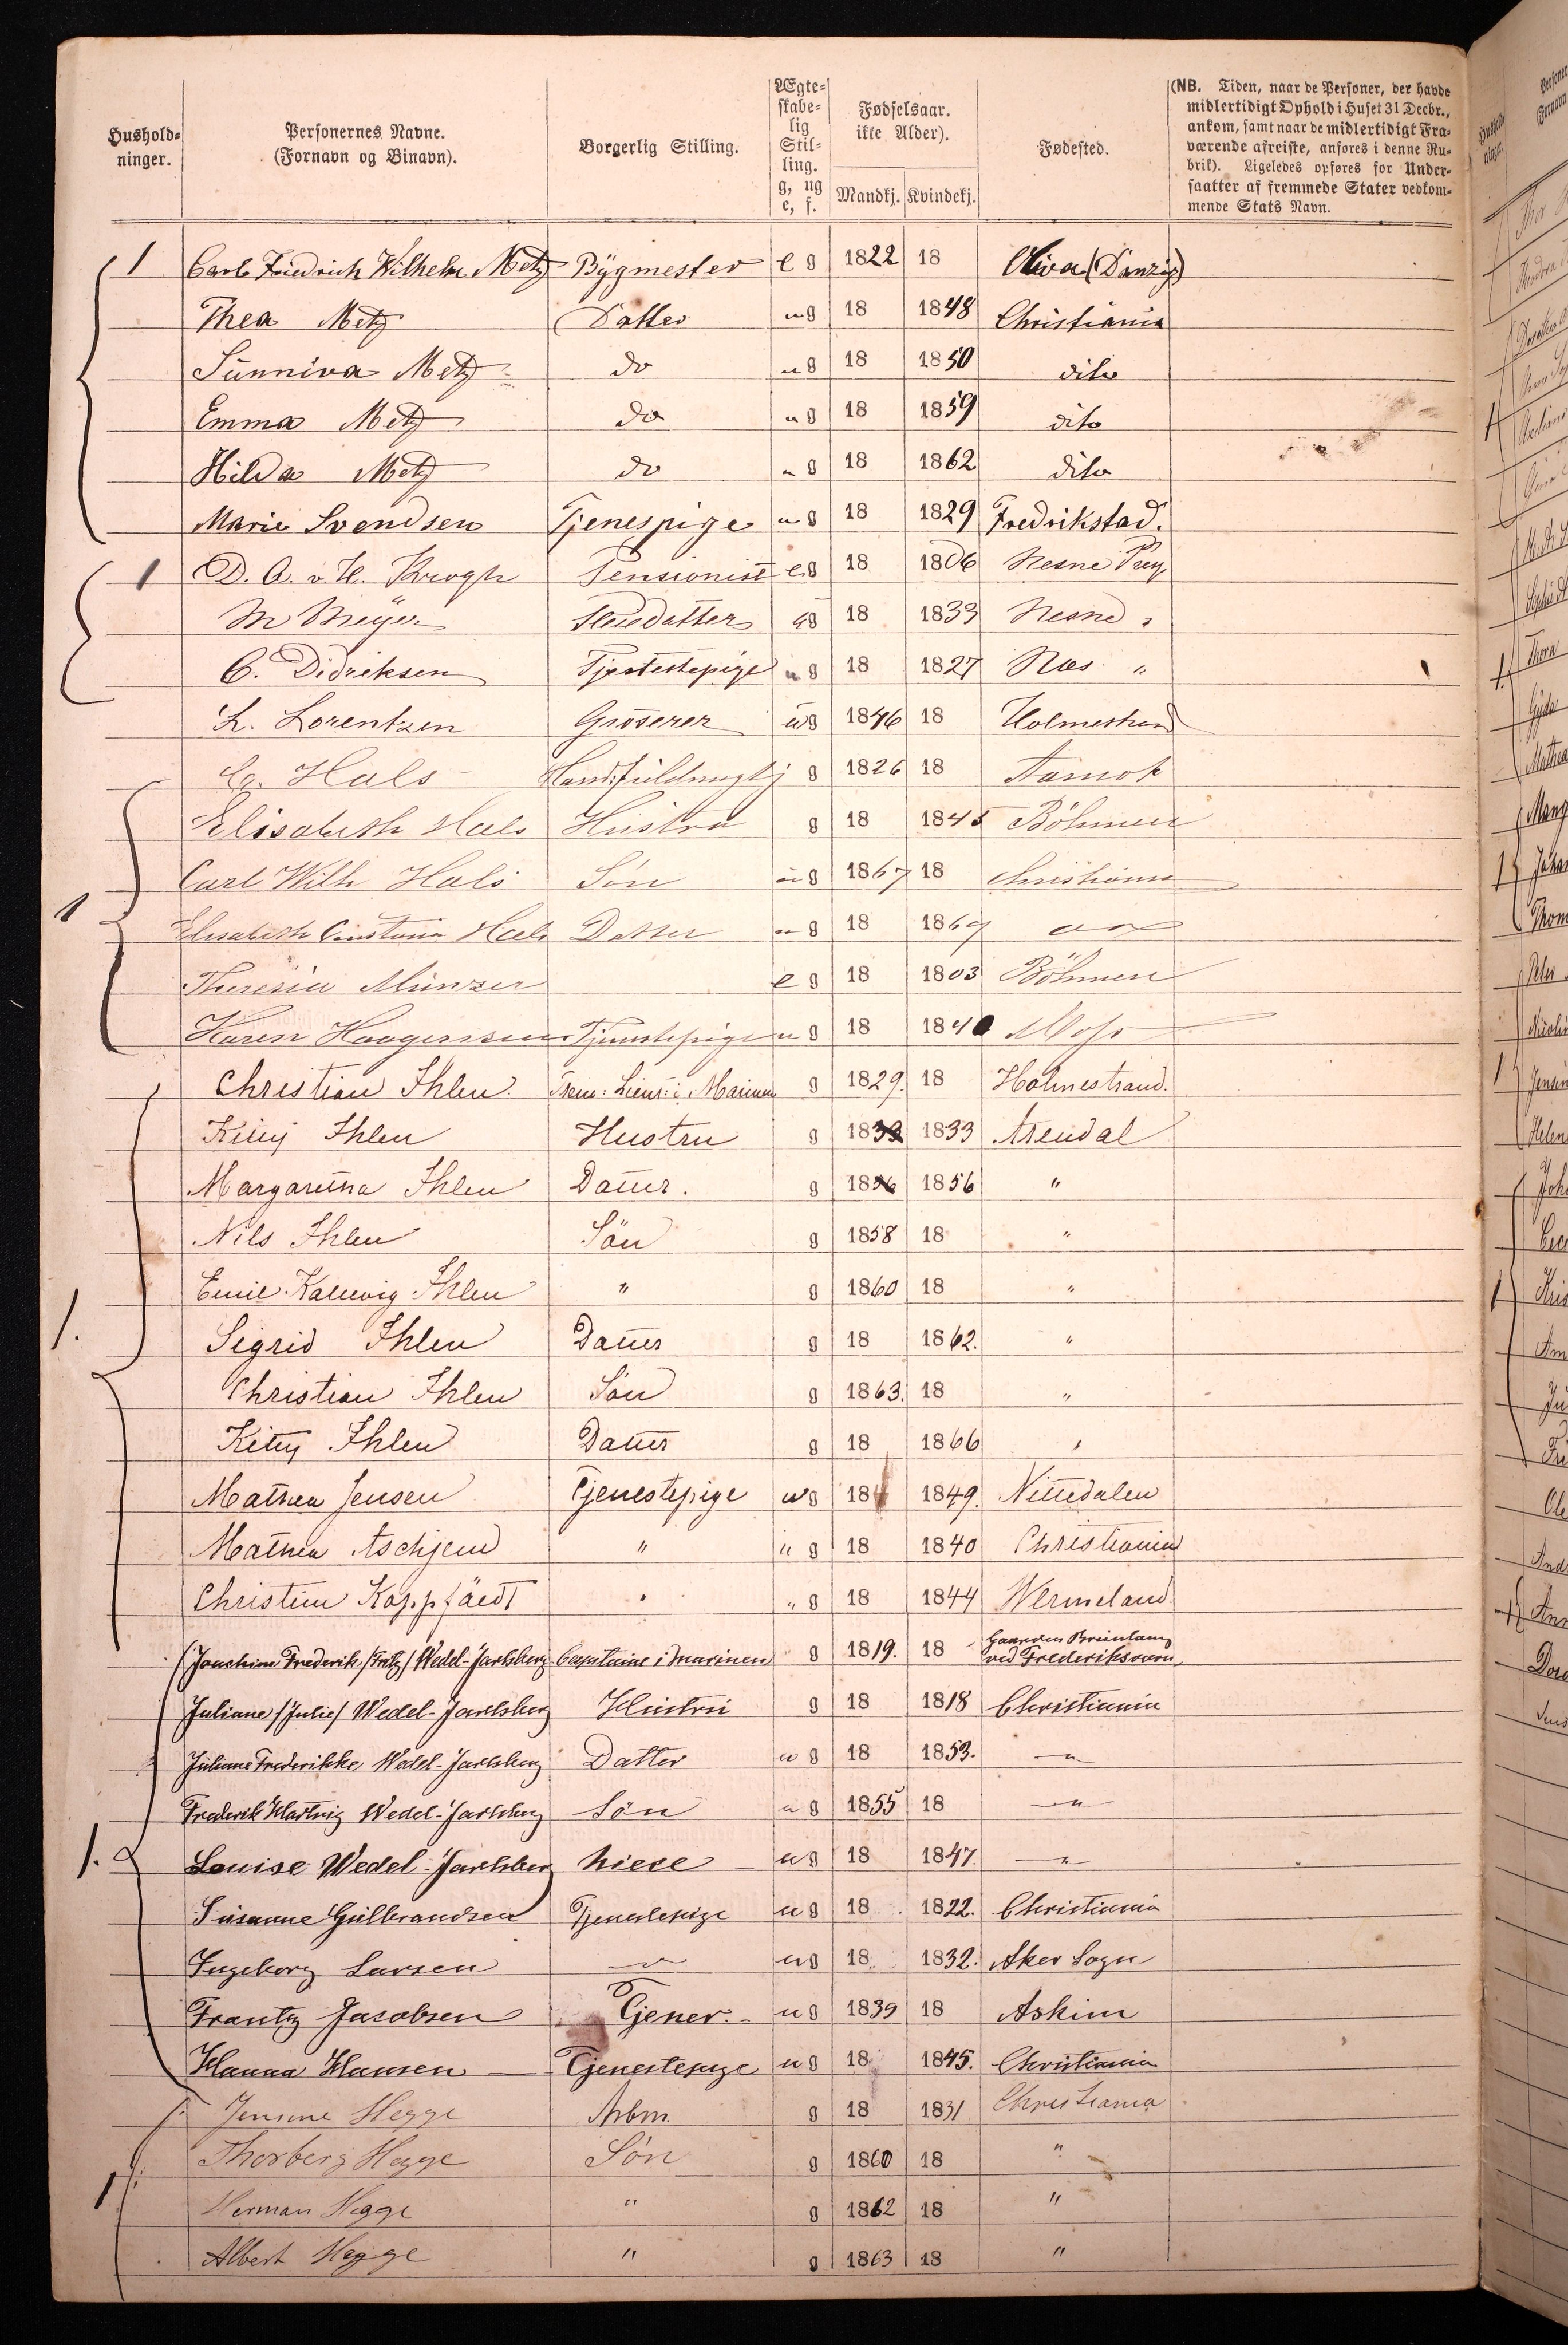 Hushold-
ninger.
Personernes Navne.
(Fornavn og Binavn).
Borgerlig Stilling.
Ægte-
skabe-
lig
Stil-
ling.
g, ug
e, f.
Fødselsaar.
ikke Alder).
Mandkj. Kvindekj.
Fødested.
(NB. Tiden, naar de Personer, der havde
midlertidigt Ophold i Huset 31 Decbr.,
ankom, samt naar de midlertidigt Fra-
værende afreiste, anføres i denne Ru-
brik). Ligeledes opføres for Under-
saatter af fremmede Stater vedkom-
mende Stats Navn.
1 Carl Friedrich Wilhelm Metz Bygmester e g 1822 18 Oliva (Danzig)
Thea Metz Datter ug 18 1848 Christiania
Sünniva Metz do ug 18 1850 dito
Emma Metz do ug 18 1859 dito
Hilda Metz do ug 18 1862 dito
Marie Svendsen Tjenespige ug 18 1829 Fredrikstad.
1 D. A. v. H. Krogh Pensionist eg 18 1806 Nesne
M Meÿer datter g 18 1833 Nesne "
C. Didriksen Tjenestepige ug 18 1827 Næs "
L. Lorentzen Grosserer ug 1846 18 Holmestrand
Hals g 1826 18
Elisabeth Hals Hustru g 18 1845 Böhmen
Carl Wilh Hals Sön ug 1867 18 Christiania
1 Elisabeth Hals Datter ug 18 1869
Theresia Münzer e g 18 1803 Böhmen
Karen Tjenestepige ug 18 1840 Moss
Christian Ihlen Prem: Lieut: i Marinen g 1829. 18 Holmestrand.
Kitty Ihlen Hustru g 18 1833 Arendal
Margaretha Ihlen Datter. g 18 1856 "
Nils Ihlen Sön g 1858 18 "
Emil Kallevig Ihlen " g 1860 18 "
1. Sigrid Ihlen Datter g 18 1862. "
Christian Ihlen Sön g 1863. 18 "
Kitty Ihlen Datter g 18 1866 "
Mathea Jensen Tjenestepige ug 18 1849. Nittedalen
Mathea Aschjem " " g 18 1840 Christiania
Christine " " g 18 1844 Wermeland
Joachim Frederik /Fritz/ Wedel-Jarlsberg Capitaine i Marinen g 1819. 18 Gaarden
ved Frederiksværn
Juliane /Julie/ Wedel-Jarlsberg Hustru g 18 1818 Christiania
Juliane Frederikke Wedel-Jarlsberg Datter u g 18 1853. — " —
Frederik Hartvig Wedel-Jarlsberg Sön u g 1855 18 — " —
1. Louise Wedel-Jarlsberg Niece ug 18 1847. — " —
Susanne Gulbrandsen Tjenestepige ug 18 1822. Christiania
Ingeborg Larsen — " — ug 18 1832. Aker Sogn
Frantz Jacobsen Tjener. ug 1839 18 Askim
Hanna Hansen Tjenestepige ug 18 1845. Christiania
Jensine Hegge Arbm. g 18 1831 Christiania
Thorberg Hegge Sön g 1860 18 "
1 Herman Hegge " g 1862 18 "
Albert Hegge " g 1863 18 "